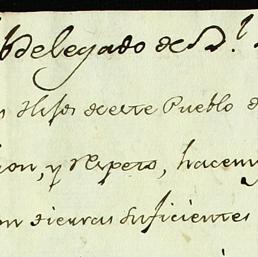 bdelegado de Rl.
s Hijos de este Pueblo d
ion, y Respeto, hacem
on tierras suficientes